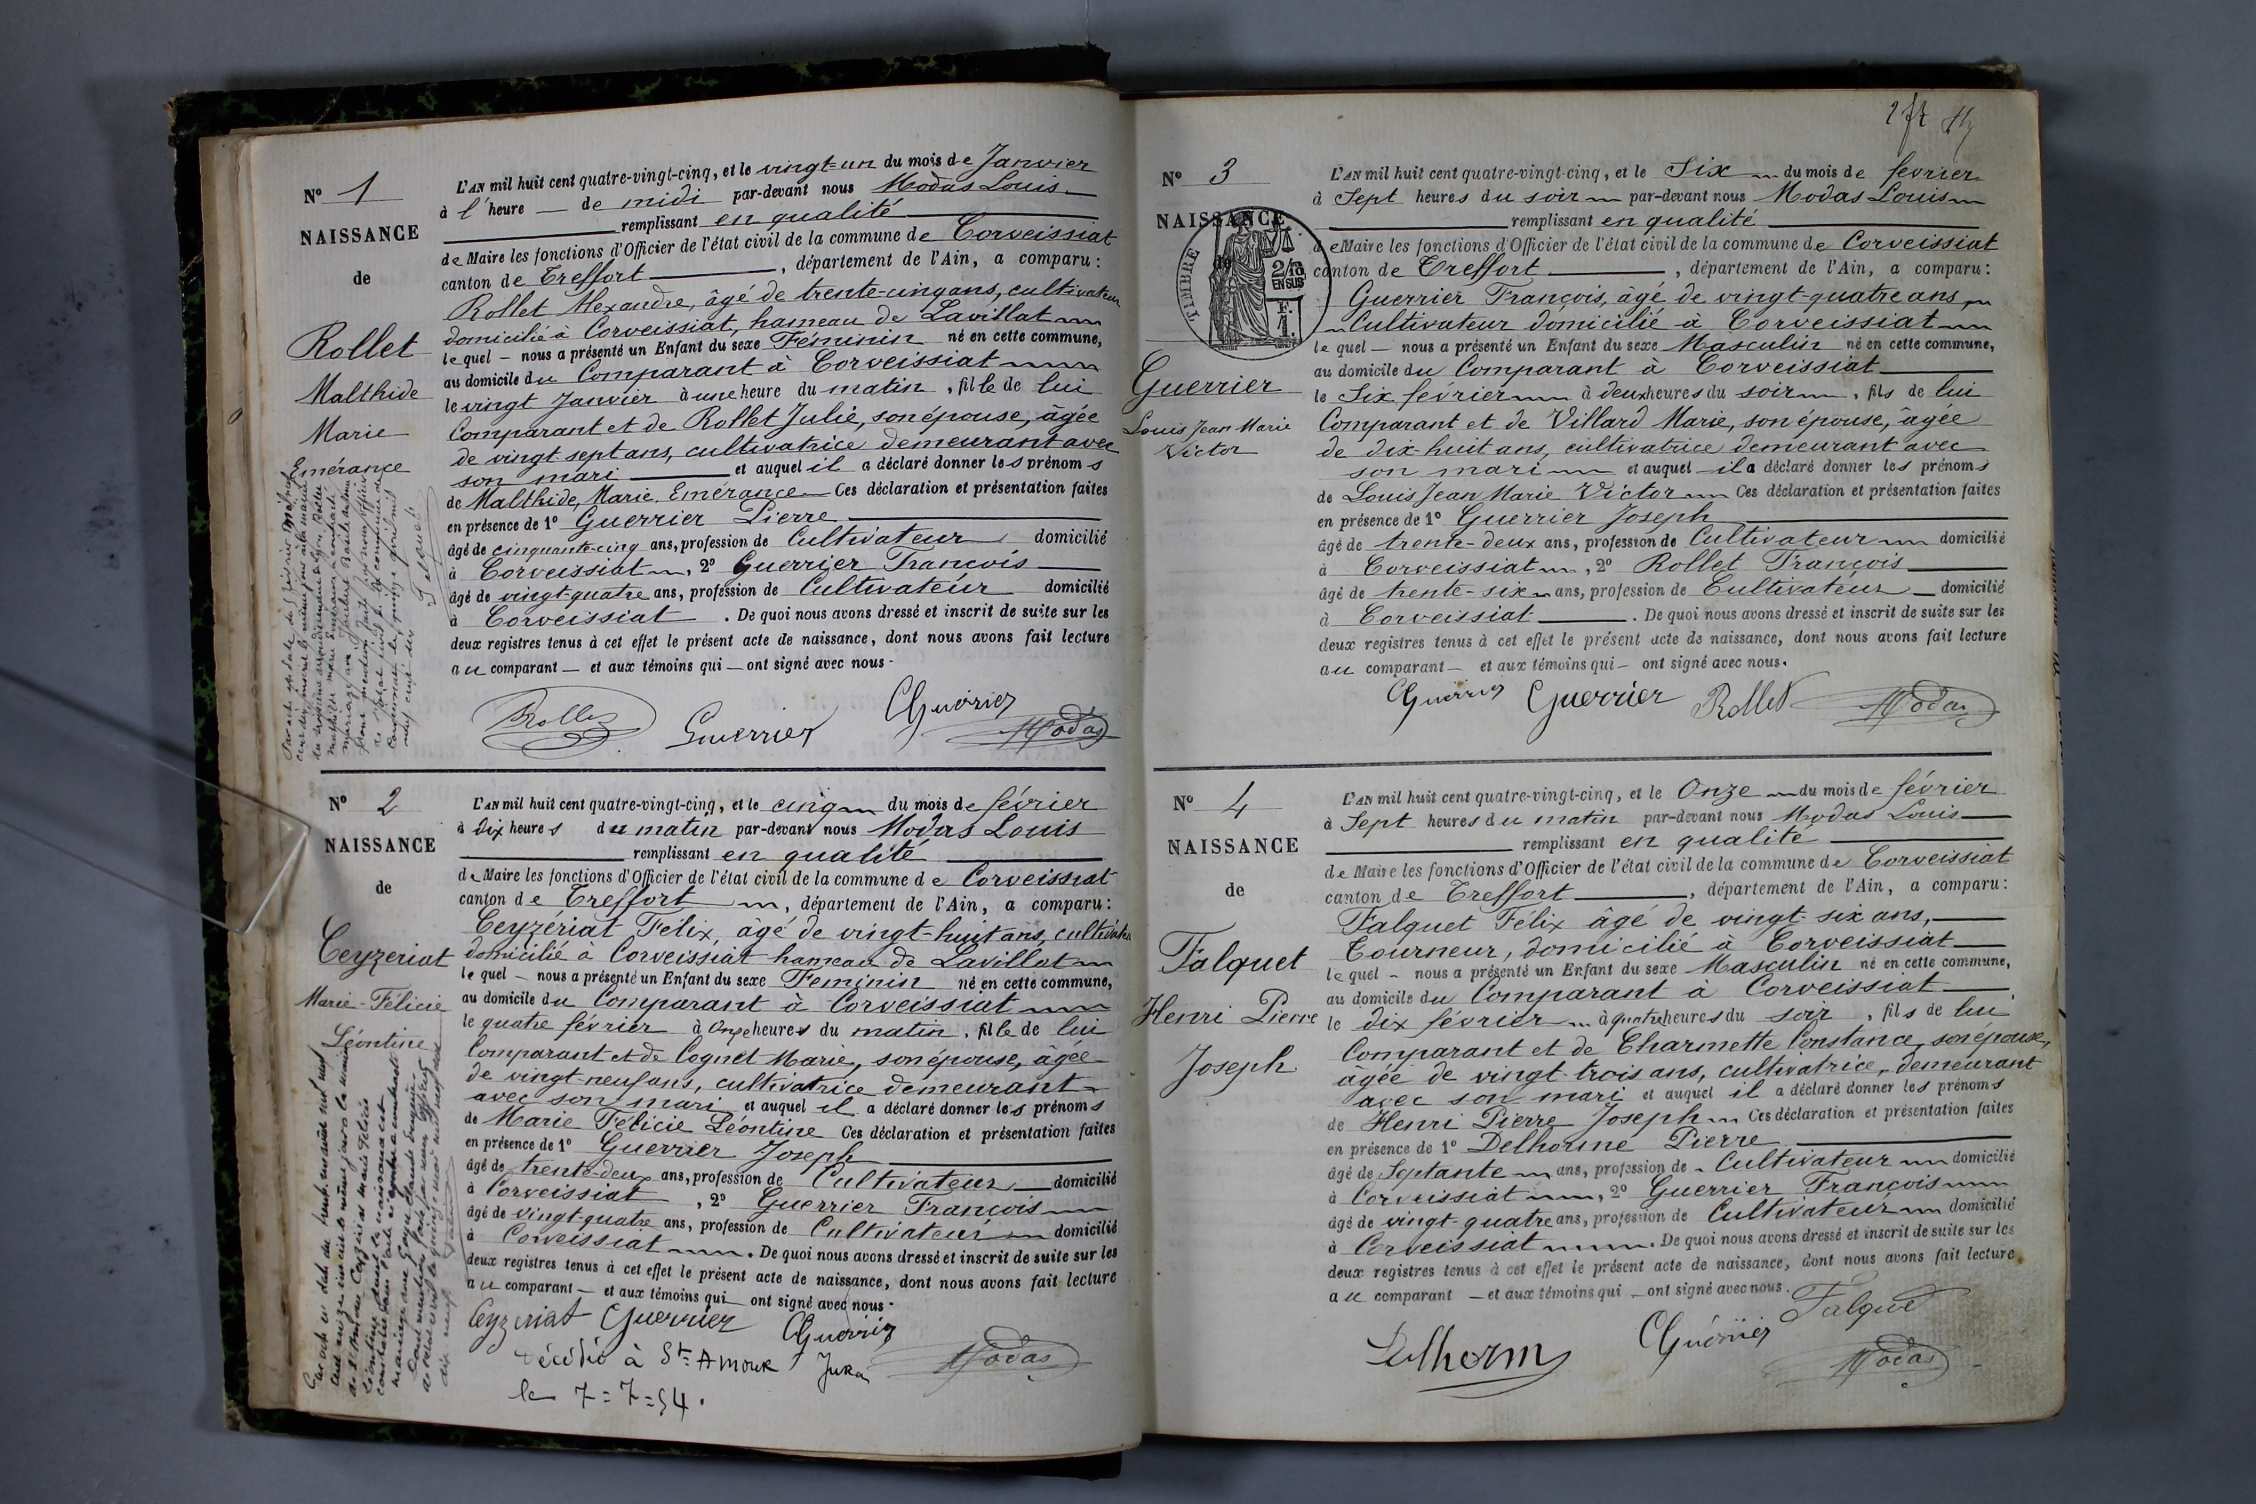 Nº 1
NAISSANCE
de
Rollet
Malthide
Marie
Emérance
L'AN mil huit cent quatre-vingt-cinq, et le vingt-un du mois de Janvier
à l'heure — de midi par-devant nous Modas Louis
remplissant en qualité
de Maire les fonctions d'Officier de l'état civil de la commune de Corveissiat
canton de Treffort, département de l'Ain, a comparu :
Rollet Alexandre, âgé de trente-cinq ans, cultivateur
domicilié à Corveissiat, hameau de Lavillat
lequel — nous a présenté un Enfant du sexe Féminin né en cette commune,
au domicile du Comparant à Corveissiat
le vingt Janvier à une heure du matin, fille de lui
Comparant et de Rollet Julie, son épouse, âgée
de vingt sept ans, cultivatrice demeurant avec
son mari et auquel il a déclaré donner les prénoms
de Malthide, Marie, Emérance — Ces déclaration et présentation faites
en présence de 1º Guerrier Pierre
âgé de cinquante-cinq ans, profession de Cultivateur domicilié
à Corveissiat, 2º Guerrier François
âgé de vingt-quatre ans, profession de Cultivateur domicilié
à Corveissiat. De quoi nous avons dressé et inscrit de suite sur les
deux registres tenus à cet effet le présent acte de naissance, dont nous avons fait lecture
au comparant — et aux témoins qui — ont signé avec nous.
Rollet Guerrier CGuérrier Modas
Nº 2
NAISSANCE
de
Ceyzeriat
Marie-Félicie
Léontine
L'AN mil huit cent quatre-vingt-cinq, et le cinq du mois de février
à dix heures du matin par-devant nous Modas Louis
remplissant en qualité
de Maire les fonctions d'Officier de l'état civil de la commune de Corveissiat
canton de Treffort, département de l'Ain, a comparu :
Ceyzériat Félix, âgé de vingt-huit ans, cultivateur
domicilié à Corveissiat hameau de Lavillat
lequel — nous a présenté un Enfant du sexe Feminin né en cette commune,
au domicile du Comparant à Corveissiat
le quatre février à Onze heures du matin, fille de lui
Comparant et de Cognet Marie, son épouse, âgée
de vingt-neuf ans, cultivatrice demeurant
avec son mari et auquel il a déclaré donner les prénoms
de Marie Félicie Léontine Ces déclaration et présentation faites
en présence de 1º Guerrier Joseph
âgé de trente-deux ans, profession de Cultivateur domicilié
à Corveissiat, 2º Guerrier François
âgé de vingt-quatre ans, profession de Cultivateur domicilié
à Corveissiat. De quoi nous avons dressé et inscrit de suite sur les
deux registres tenus à cet effet le présent acte de naissance, dont nous avons fait lecture
au comparant — et aux témoins qui — ont signé avec nous.
Ceyzeriat Guerrier CGuérrier
Décédée à St Amour Jura Modas
le 7=7=54.
Nº 3
NAISSANCE
de
TIMBRE
2/10
EN SUS
F.
1.
Guerrier
Louis Jean Marie
Victor
L'AN mil huit cent quatre-vingt-cinq, et le Six du mois de février
à Sept heures du soir par-devant nous Modas Louis
remplissant en qualité
de Maire les fonctions d'Officier de l'état civil de la commune de Corveissiat
canton de Treffort, département de l'Ain, a comparu :
Guerrier François, âgé de vingt-quatre ans,
Cultivateur domicilié à Corveissiat
lequel — nous a présenté un Enfant du sexe Masculin né en cette commune,
au domicile du Comparant à Corveissiat
le Six février à deux heures du soir, fils de lui
Comparant et de Villard Marie, son épouse, âgée
de dix-huit ans, cultivatrice demeurant avec
son mari et auquel il a déclaré donner les prénoms
de Louis Jean Marie Victor Ces déclaration et présentation faites
en présence de 1º Guerrier Joseph
âgé de trente-deux ans, profession de Cultivateur domicilié
à Corveissiat, 2º Rollet François
âgé de trente-six ans, profession de Cultivateur domicilié
à Corveissiat. De quoi nous avons dressé et inscrit de suite sur les
deux registres tenus à cet effet le présent acte de naissance, dont nous avons fait lecture
au comparant — et aux témoins qui — ont signé avec nous.
CGuérrier Guerrier Rollet Modas
Nº 4
NAISSANCE
de
Falquet
Henri Pierre
Joseph
L'AN mil huit cent quatre-vingt-cinq, et le Onze du mois de février
à Sept heures du matin par-devant nous Modas Louis
remplissant en qualité
de Maire les fonctions d'Officier de l'état civil de la commune de Corveissiat
canton de Treffort, département de l'Ain, a comparu :
Falquet Félix âgé de vingt-six ans,
Tourneur, domicilié à Corveissiat
lequel — nous a présenté un Enfant du sexe Masculin né en cette commune,
au domicile du Comparant à Corveissiat
le dix février à quatre heures du soir, fils de lui
Comparant et de Charmette Constance, son épouse,
âgée de vingt-trois ans, cultivatrice, demeurant
avec son mari et auquel il a déclaré donner les prénoms
de Henri Pierre Joseph Ces déclaration et présentation faites
en présence de 1º Delhorme Pierre
âgé de Septante ans, profession de Cultivateur domicilié
à Corveissiat, 2º Guerrier François
âgé de vingt-quatre ans, profession de Cultivateur domicilié
à Corveissiat. De quoi nous avons dressé et inscrit de suite sur les
deux registres tenus à cet effet le présent acte de naissance, dont nous avons fait lecture
au comparant — et aux témoins qui — ont signé avec nous.
Delhorm CGuérrier Falque Modas